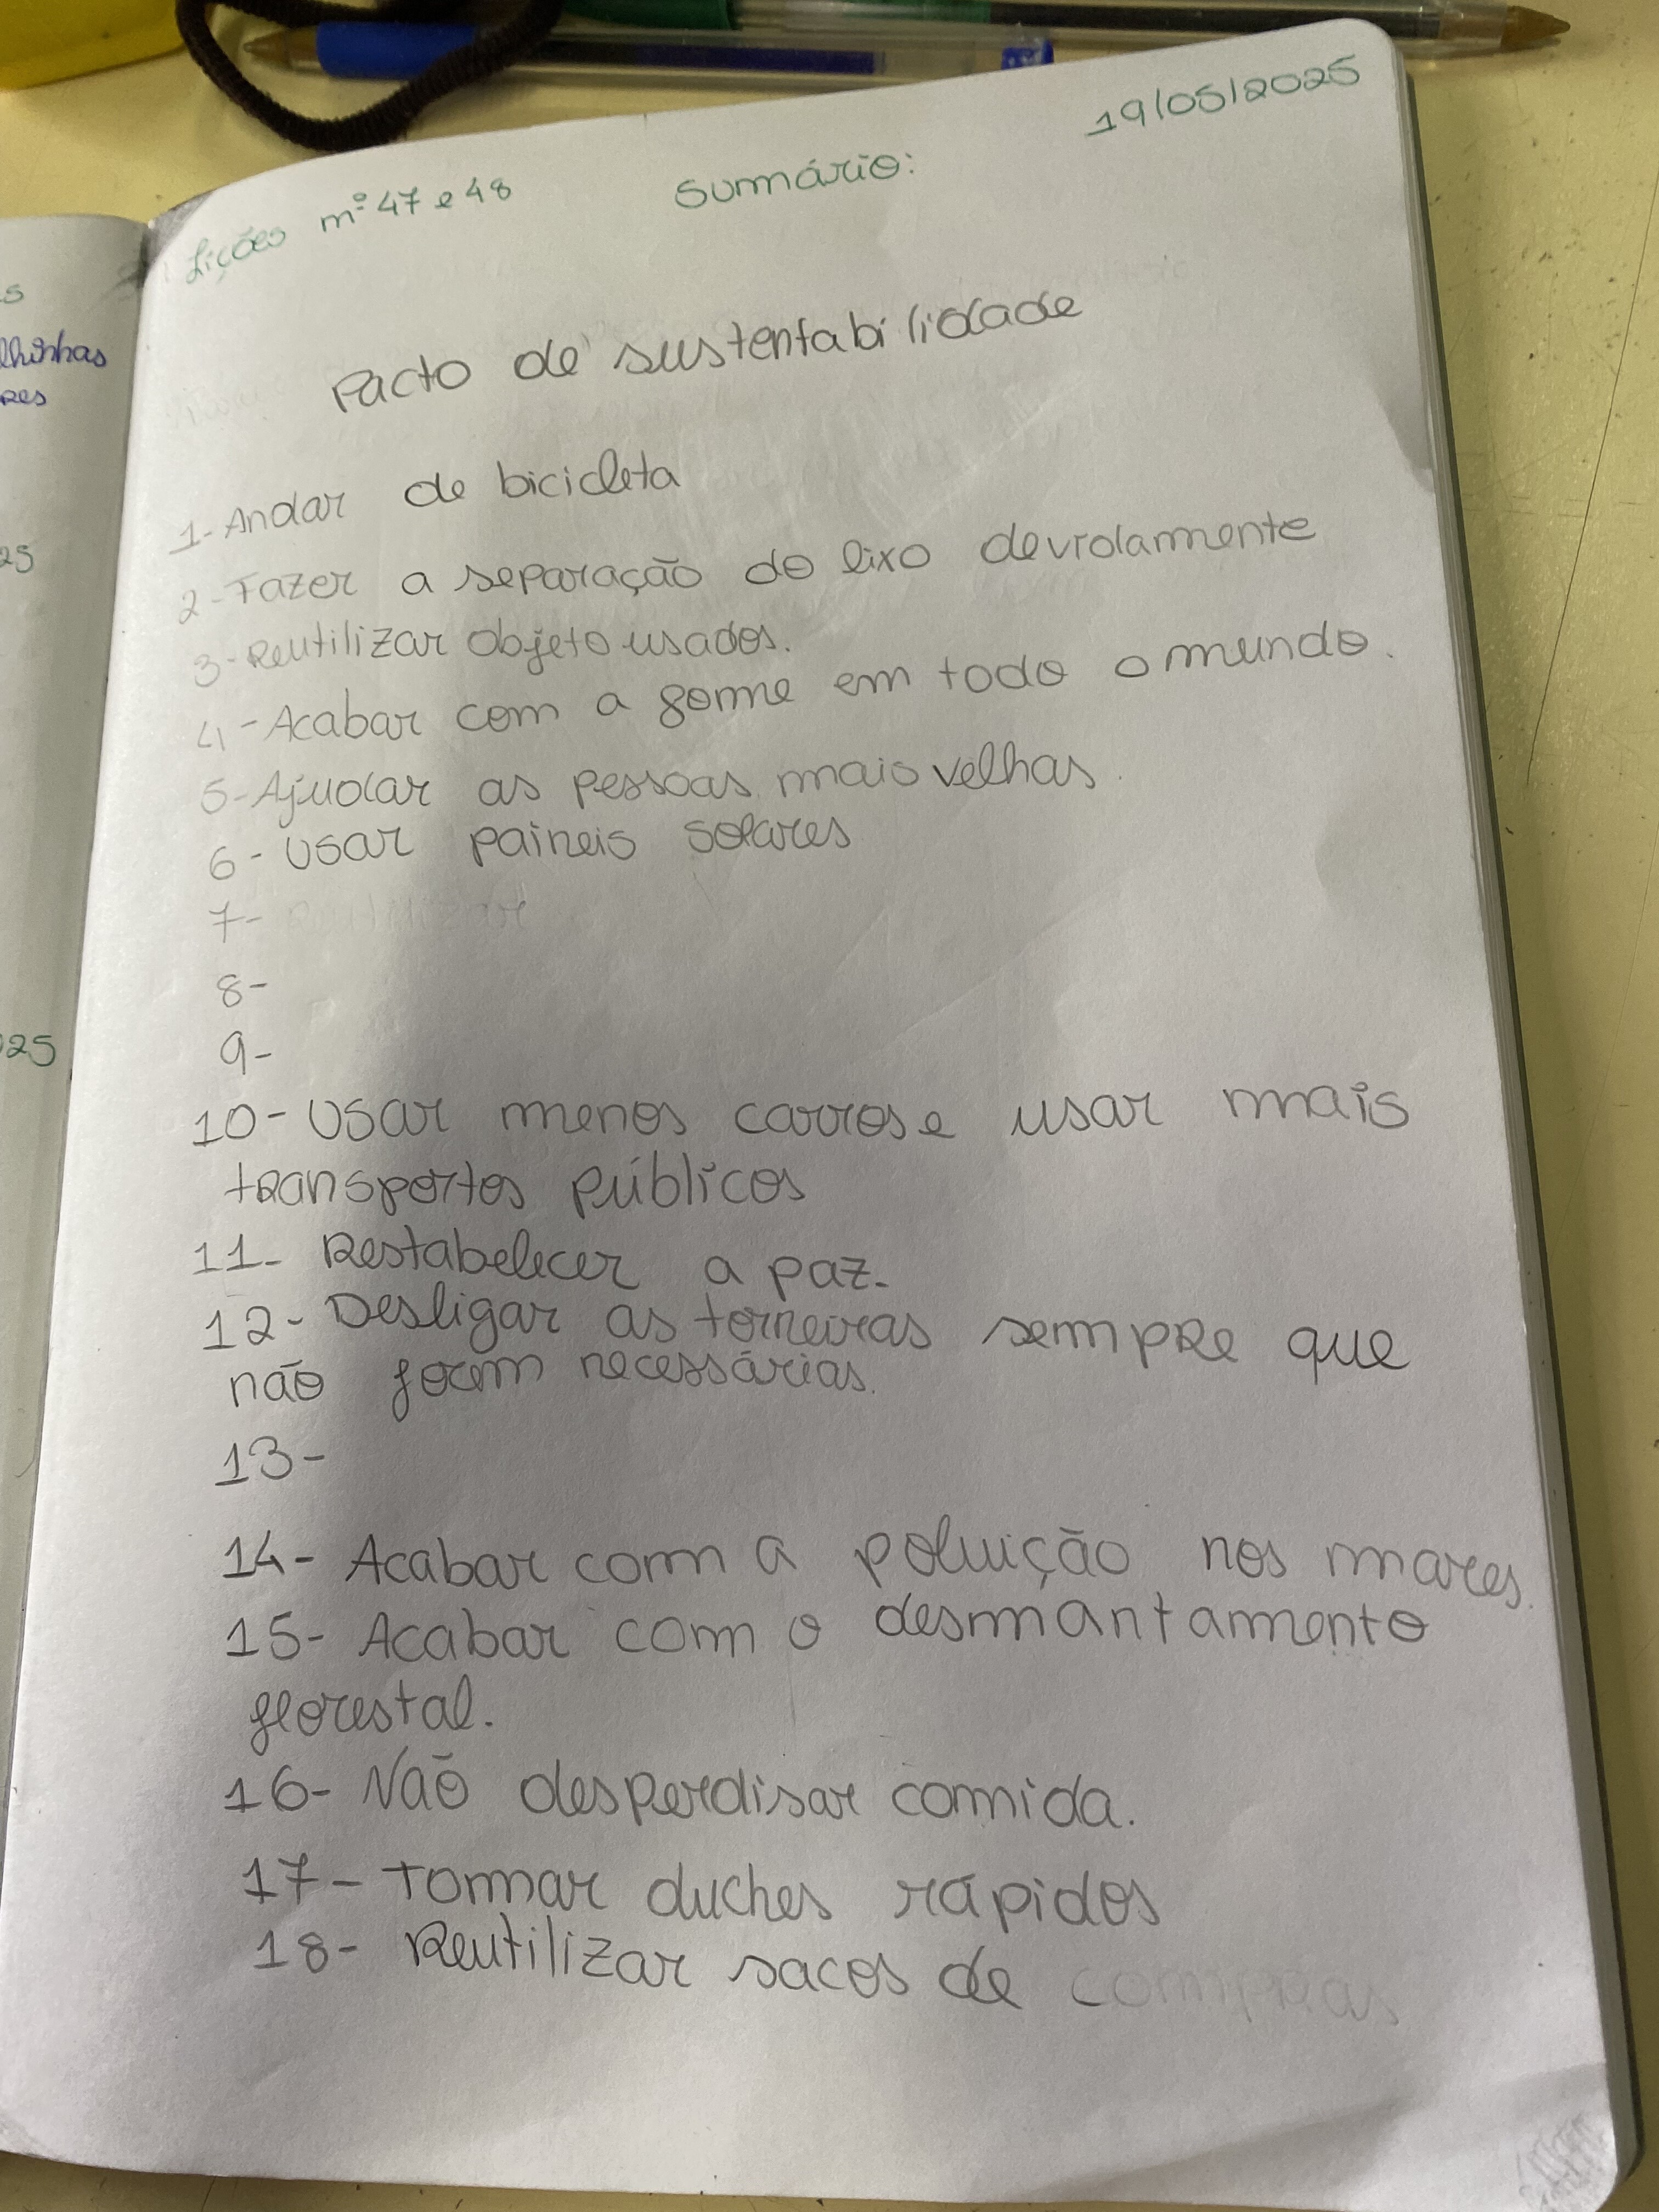 19/05/2025
Lições nº 47 e 48 Sumário:
Pacto de sustentabilidade
1- Andar de bicicleta
2- Fazer a separação do lixo devidamente
3- Reutilizar objeto usados.
4- Acabar com a fome em todo o mundo.
5- Ajudar as pessoas mais velhas.
6- Usar paineis solares
7- Reutilizar
8-
9-
10- Usar menos carros e usar mais
transportes públicos
11- Restabelecer a paz.
12- Desligar as torneiras sempre que
não forem necessárias.
13-
14- Acabar com a poluição nos mares.
15- Acabar com o desmantamento
florestal.
16- Não desperdisar comida.
17- Tomar duches rápidos
18- Reutilizar sacos de compras
lhinhas
res
25
025